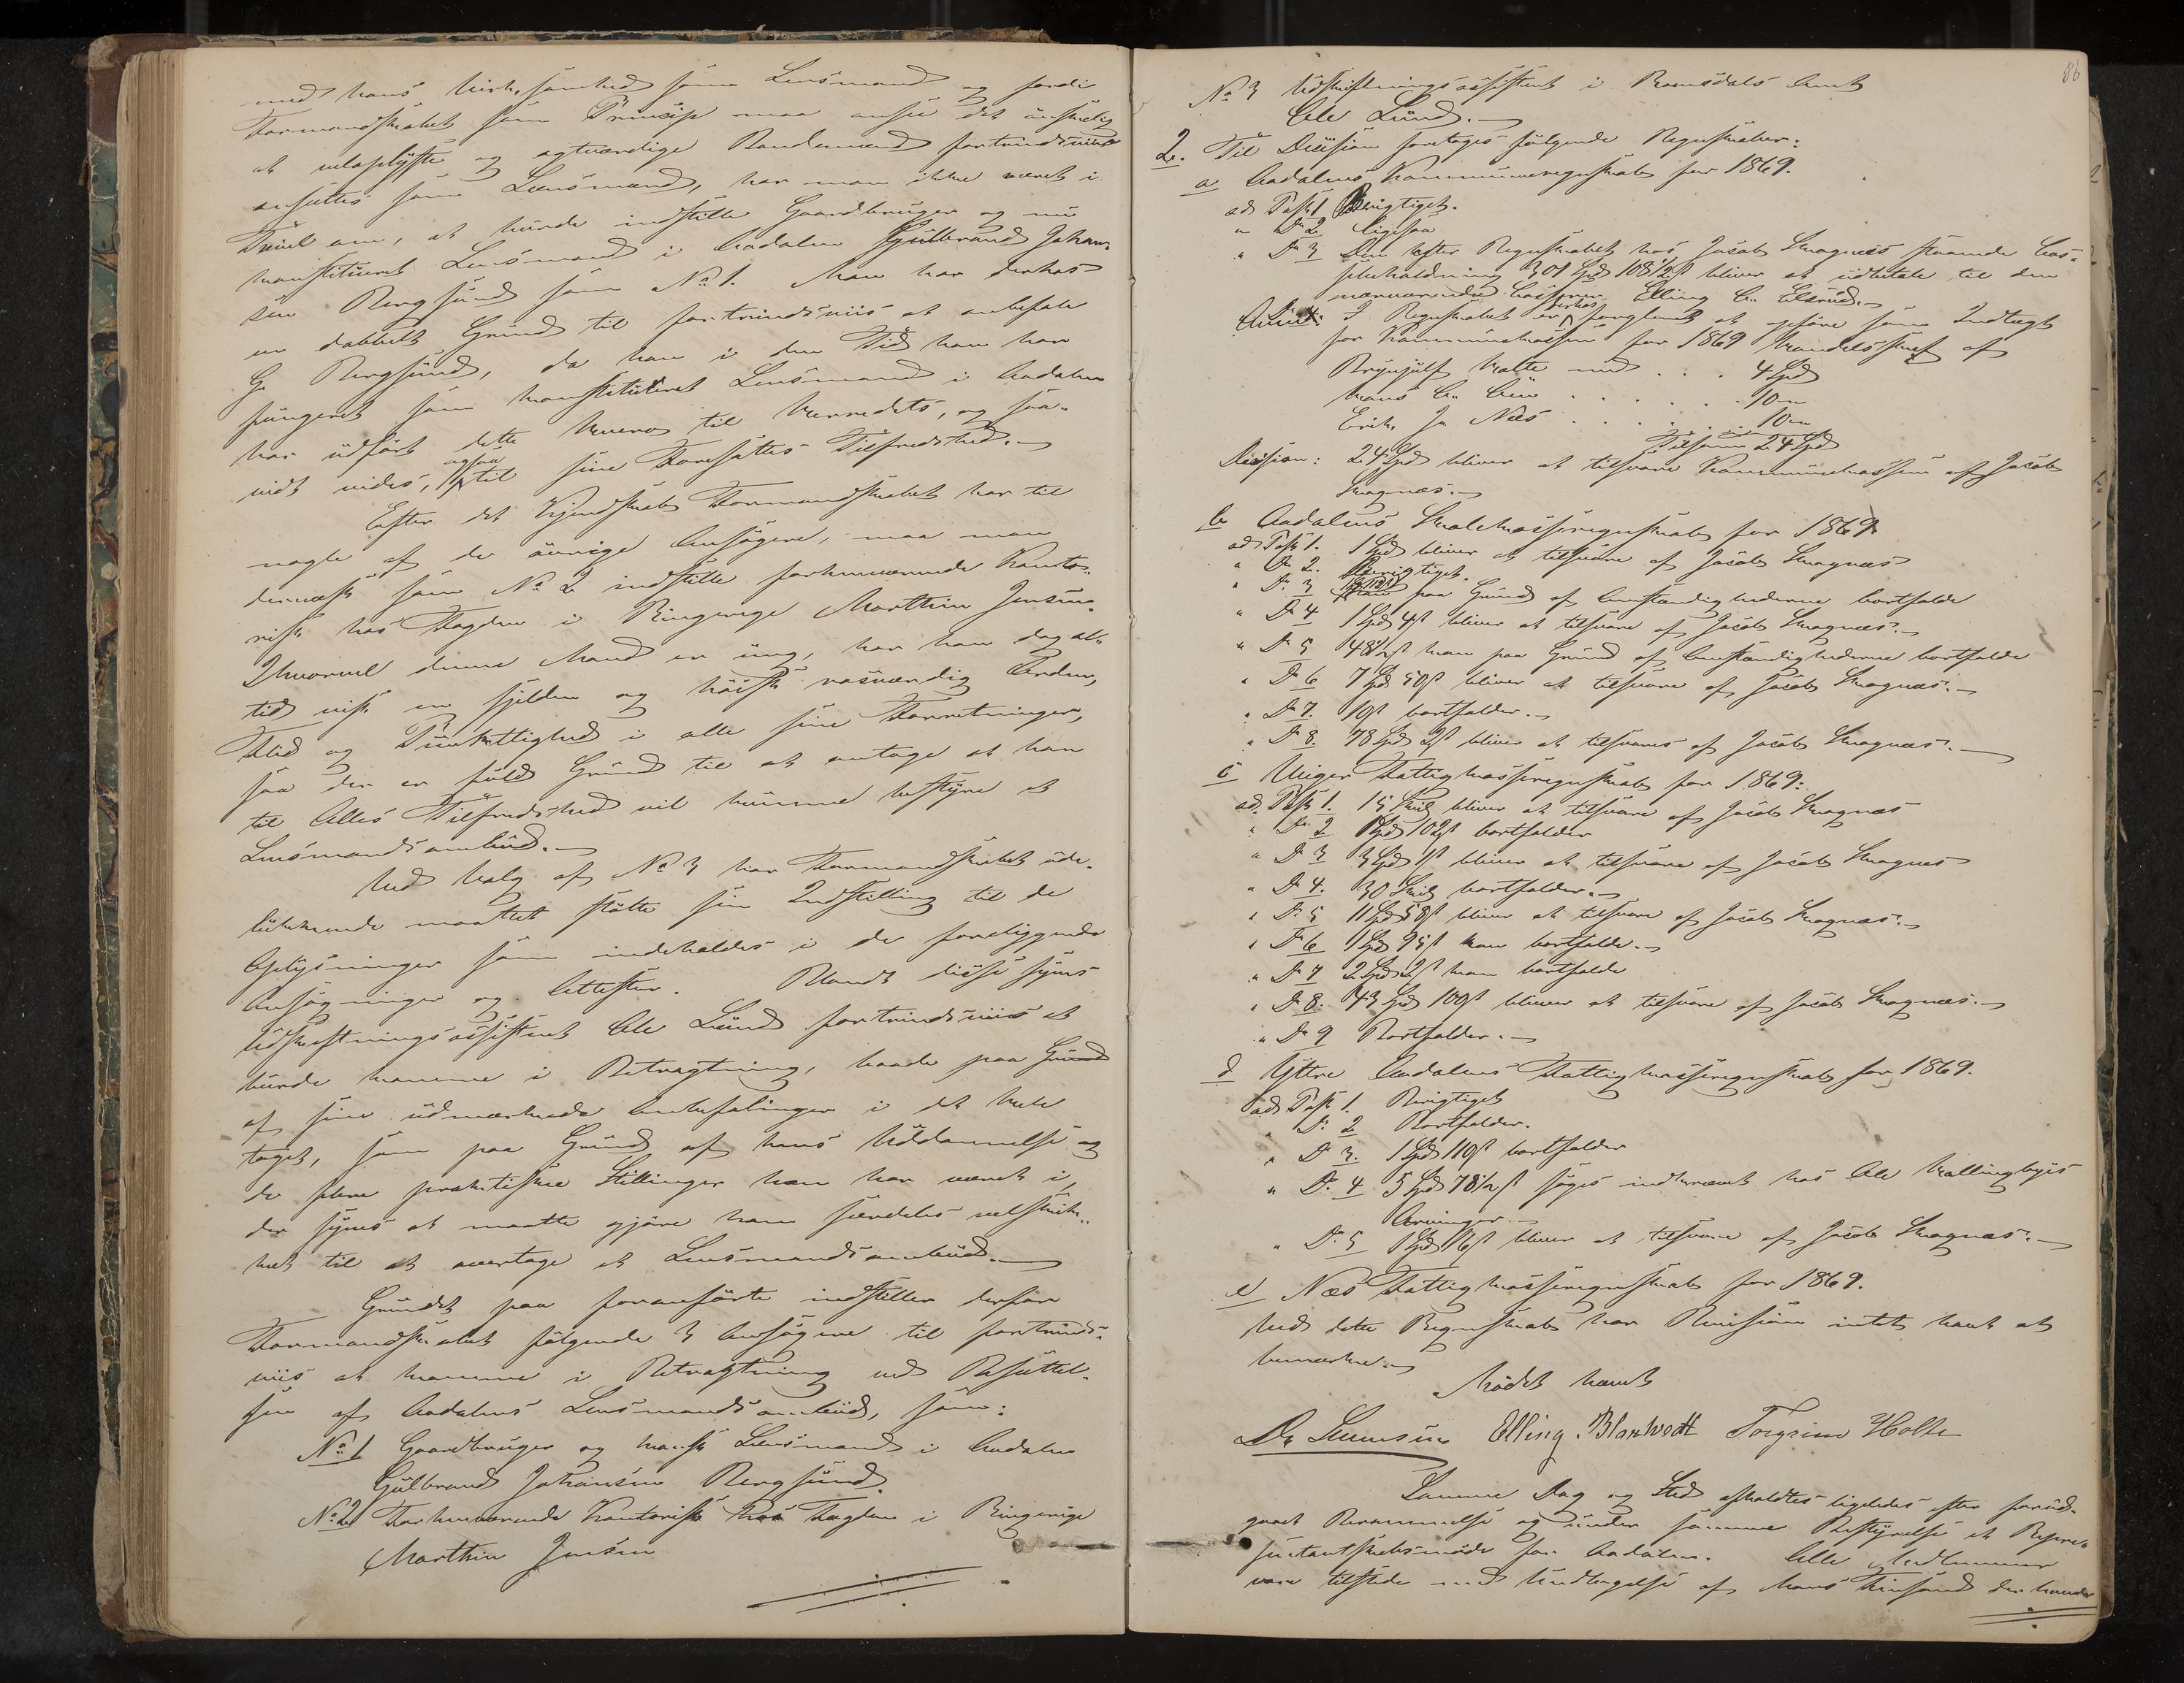 med hans Virksomhed som Lensmand og fordi
Formandskabet som Princip maa ansee det ønskelig
at veloplyste og agtværdige Bondemænd fortrinsviis
ansættes som Lensmænd, har man ikke været i
Tvivl om, at burde indstille Gaardbruger og nu
konstitueret Lensmand i Aadalen Gulbrand Johan-
sen Bergsund som No 1. Man har derhos
en dobbelt Grund til fortrinsviis at anbefale
G. Bergsund, da han i den Tid han har
fungeret som konstitueret Lensmand i Aadalen
har udført dette Hverv til Herredets, og saa-
vidt vides, ogsaa til sine Foresattes Tilfredshed.
Efter det Kjendskab Formandskabet har til
nogle af de øvrige Ansøgere, maa man
dernæst som No 2 indstille forhenværende Konto-
rist hos Fogden i Ringerige Marthin Jensen.
Ihvorvel denne Mand er ung, har han dog al-
tid vist en sjelden og høist rosværdig Orden,
Flid og Punktlighed i alle sine Forretninger,
saa der er fuld Grund til at antage at han
til Alles Tilfredshed vil kunne bestyre et
Lensmandsombud.
Ved Valg af No 3 har Formandskabet ude-
lukkende maattet støtte sin Indstilling til de
Oplysninger som indeholdes i de foreliggende
Ansøgninger og Attester. Blandt disse synes
Udskiftningsassistent Ole Lund fortrinsviis at
burde komme i Betragtning, baade paa Grund
af sine udmærkede Anbefalinger i det hele
taget, som paa Grund af hans Uddannelse og
de flere praktiske Stillinger han har været i,
der synes at maatte gjøre ham særdeles velskik-
ket til at overtage et Lensmandsombud.
Grundet paa foranførte indstiller derfor
Formandskabet følgende 3 Ansøgere til fortrins-
viis at komme i Betragtning ved Besættel-
sen af Aadalens Lensmandsombud, som:
No 1 Gaardbruger og konst. Lensmand i Aadalen
Gulbrand Johansen Bergsund.
No 2 Forhenværende Kontorist hos Fogden i Ringerige
Marthin Jensen
86
No 3 Udskiftningsassistent i Romsdals Amt
Ole Lund.
2. Til Decision foretoges følgende Regnskaber:
a Aadalens Kommuneregnskab for 1869.
ad Post 1 Berigtiget.
" Do 2 Ligesaa
" Do 3 Den efter Regnskabet hos Jacob Skagnæs staaende Cas-
sebeholdning 301 Spd 108 1/2 s bliver at udbetale til den
nærværende Casserer Elling E. Elsrud.
I Regnskabet er derhos forglemt at opføre som Indtægt
for Kommunekassen for 1869 Handelsskat af
Brynjulf Kolte med . . . 4 Spd
Hans . . . . . . 10 "
Erik J. Næs . . . . . 10 "
Tilsammen 24 Spd
Decision: 24 Spd bliver at tilsvare Kommunekassen af Jacob
Skagnæs.
b Aadalens Skolekasseregnskab for 1869
ad Post 1. 1 Spd bliver at tilsvare af Jacob Skagnæs
" Do 2. Berigtiget.
" Do 3 paa Grund af Omstændighederne bortfalde
" Do 4 1 Spd 4 s bliver at tilsvare af Jacob Skagnæs.
" Do 5 48 1/2 s kan paa Grund af Omstændighederne bortfalde
" Do 6 7 Spd 50 s bliver at tilsvare af Jacob Skagnæs.
" Do 7. 10 s bortfalder.
" Do 8. 78 Spd 2 s bliver at tilsvares af Jacob Skagnæs.
c Viger Fattigkasseregnskab for 1869:
ad. Post 1. 15 Skill bliver at tilsvare af Jacob Skagnæs
" Do 2 1 Spd 102 s bortfalder
" Do 3 3 Spd 1 s bliver at tilsvare af Jacob Skagnæs
" Do 4. 30 Skill bortfalder.
" Do 5 11 Spd 58 s bliver at tilsvare af Jacob Skagnæs.
" Do 6 1 Spd 95 s kan bortfalde.
" Do 7 2 Spd 2 s kan bortfalde
" Do 8. 43 Spd 100 s bliver at tilsvare af Jacob Skagnæs.
" Do 9 Bortfalder.
d Yttre Aadalens Fattigkasseregnskab for 1869.
ad Post 1. Berigtiget
" Do 2 Bortfalder.
" Do 3. 1 Spd 110 s bortfalder
" Do 4 5 Spd 78 1/2 s søges inddrevet hos Ole Hallingbyes
Arvinger.
" Do 5 1 Spd 16 s bliver at tilsvare af Jacob Skagnæs.
e Næs Fattigkasseregnskab for 1869.
Ved dette Regnskab har Revisionen intet havt at
bemærke.
Mødet hævet
Elling Blakstvedt Torgrim Holte
Samme Dag og Sted afholdtes ligeledes efter forud-
gaaet Berammelse og under samme Bestyrelse et Repræ-
sentantskabsmøde for Aadalen. Alle Medlemmer
vare tilstede med Undtagelse af Hans Finsand der havde